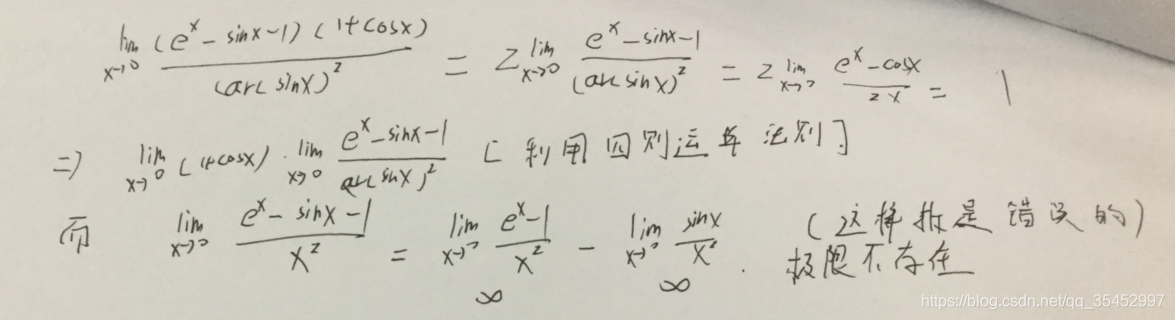 lim x→0 (e^x - sinx - 1)(1+cosx) / (arcsinx)^2 = 2 lim x→0 (e^x - sinx - 1) / (arcsinx)^2 = 2 lim x→0 (e^x - cosx) / 2x = 1
=) lim x→0 (1+cosx) · lim x→0 (e^x - sinx - 1) / (arcsinx)^2 [利用四则运算法则]
而 lim x→0 (e^x - sinx - 1) / x^2 = lim x→0 (e^x - 1) / x^2 - lim x→0 sinx / x^2 . (这样拆是错误的)
∞ ∞ 极限不存在
https://blog.csdn.net/qq_35452997